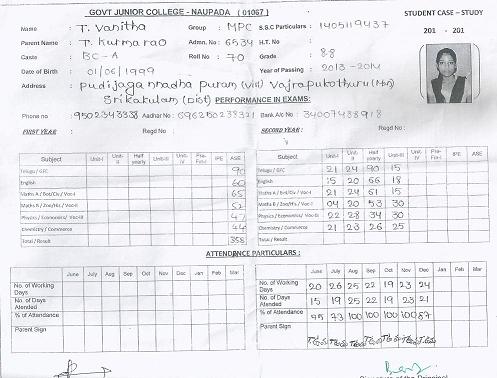 GOVT JUNIOR COLLEGE - NAUPADA ( 01067 )
STUDENT CASE – STUDY
Name : T. Vanitha Group : MPC S.S.C Particulars : 1405119437
201 - 201
Parent Name : T. Kurmarao Admn. No : 6534 H.T. No :
Caste : BC-A Roll No : 70 Grade : 8.8
Date of Birth : 01/06/1999 Year of Passing : 2013-2014
Address : pudijagannadha puram (vill) Vajrapukothuru (Mn)
Srikakulam (Dist) PERFORMANCE IN EXAMS:
Phone no : 9502343338 Aadhar No : Bank A/c No : 34007438918
FIRST YEAR : Regd No : SECOND YEAR : Regd No :
Subject Unit-I Unit-II Half yearly Unit-III Pre-Fin-I IPE ASE
Telugu / GFC 90
English 60
Maths A / Bot/Civ / Voc-I 65
Maths B / Zoo/His / Voc-II 52
Physics / Economics/ Voc-III 47
Chemistry / Commerce 44
Total / Result 358
Subject Unit-I Unit-II Half yearly Unit-III Pre-Fin-I IPE ASE
Telugu / GFC 21 24 90 15
English 15 20 66 18
Maths A / Bot/Civ / Voc-I 21 24 61 15
Maths B / Zoo/His / Voc-II 04 20 53 30
Physics / Economics/ Voc-III 22 28 34 30
Chemistry / Commerce 21 23 26 25
Total / Result
ATTENDANCE PARTICULARS :
June July Aug Sep Oct Nov Dec Jan Feb Mar
No. of Working Days
No. of Days Attended
% of Attendance
Parent Sign
June July Aug Sep Oct Nov Dec Jan Feb Mar
No. of Working Days 20 26 25 22 19 23 24
No. of Days Atended 15 19 25 22 19 23 21
% of Attendance 73 100 100 100 100 87
Parent Sign